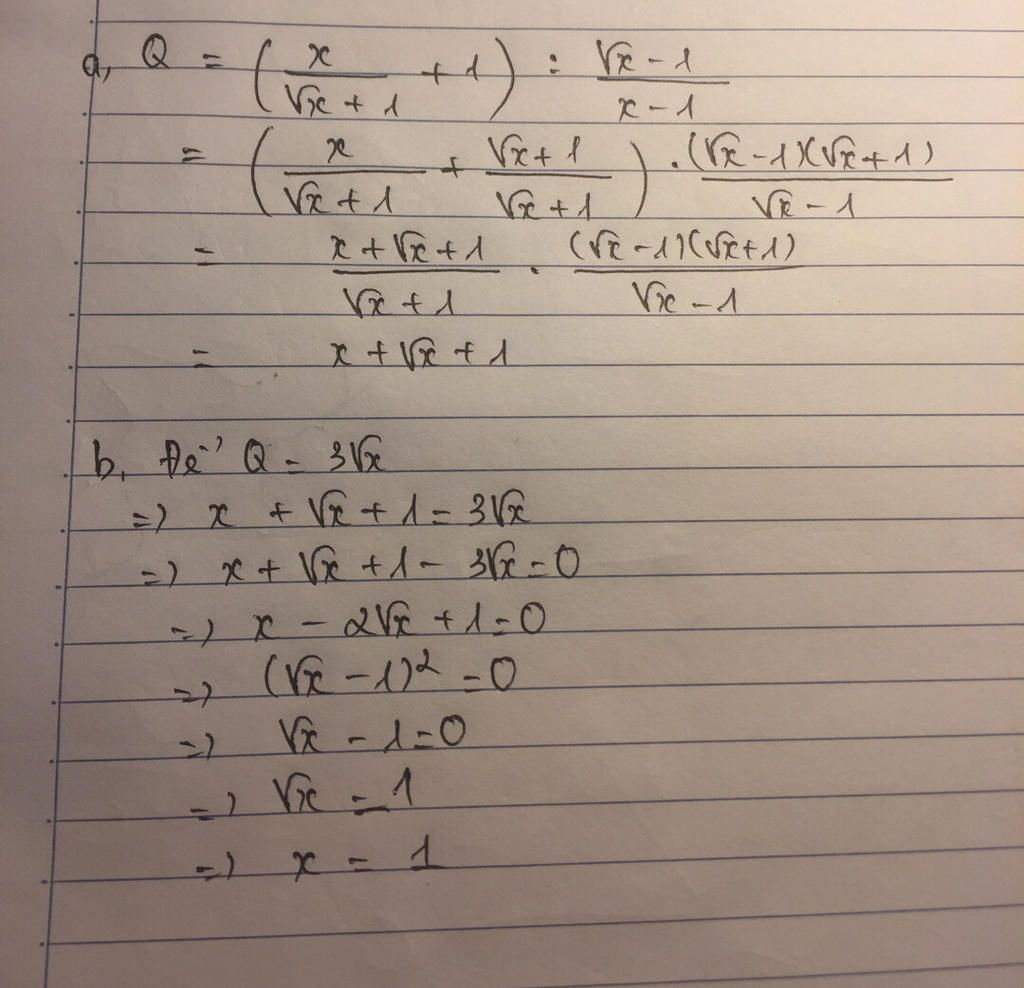 a, Q = (x/(√x + 1) + 1) : (√x - 1)/(x - 1)
= (x/(√x + 1) + (√x + 1)/(√x + 1)) . (√x - 1)(√x + 1)/(√x - 1)
= (x + √x + 1)/(√x + 1) . (√x - 1)(√x + 1)/(√x - 1)
= x + √x + 1
b, Để Q = 3√x
=> x + √x + 1 = 3√x
=> x + √x + 1 - 3√x = 0
=> x - 2√x + 1 = 0
=> (√x - 1)² = 0
=> √x - 1 = 0
=> √x = 1
=> x = 1